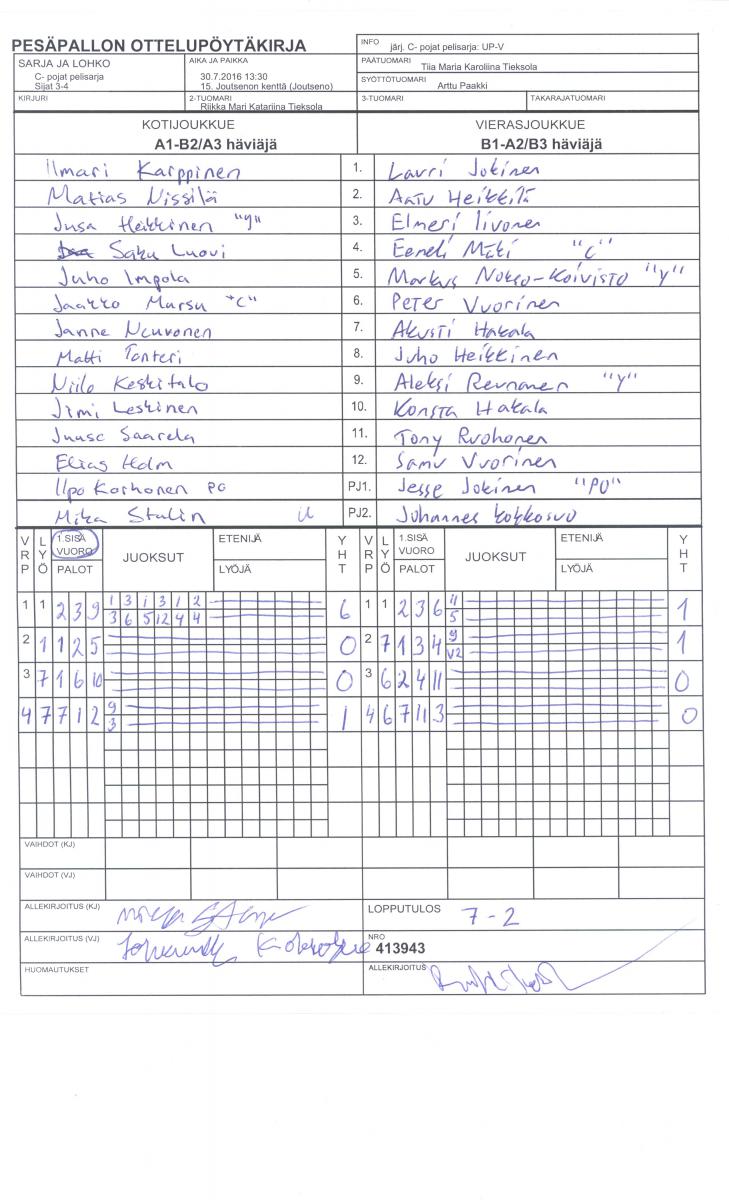 PESÄPALLON OTTELUPÖYTÄKIRJA
INFO järj. C- pojat pelisarja: UP-V
SARJA JA LOHKO
C- pojat pelisarja
Sijat 3-4
AIKA JA PAIKKA
30.7.2016 13:30
15. Joutsenon kenttä (Joutseno)
PÄÄTUOMARI Tiia Maria Karoliina Tieksola
SYÖTTÖTUOMARI Arttu Paakki
KIRJURI
2-TUOMARI
Riikka Mari Katariina Tieksola
3-TUOMARI
TAKARAJATUOMARI
KOTIJOUKKUE
A1-B2/A3 häviäjä
VIERASJOUKKUE
B1-A2/B3 häviäjä
Ilmari Karppinen 1. Lauri Jokinen
Matias Nissilä 2. Aatu Heikkilä
Jusa Heikkinen "y" 3. Elmeri Iivonen
Saku Luovi 4. Eemeli Mäki "C"
Juho Impola 5. Markus Nokso-Koivisto "y"
Jaakko Mursu "C" 6. Peter Vuorinen
Janne Neuvonen 7. Akusti Hakala
Matti Tanteri 8. Juho Heikkinen
Niilo Keskitalo 9. Aleksi Reunanen "Y"
Jimi Leskinen 10. Konsta Hakala
Juuso Saarela 11. Tony Ruohonen
Elias Holm 12. Samu Vuorinen
Ilpo Korhonen PJ1. Jesse Jokinen "PU"
Mika Stalin PJ2. Johannes Kokkosuo
VRP LYÖ 1.SISÄ VUORO PALOT JUOKSUT ETENIJÄ LYÖJÄ YHT VRP LYÖ 1.SISÄ VUORO PALOT JUOKSUT ETENIJÄ LYÖJÄ YHT
1 1 2 3 9 1 3 1 3 1 2 6 1 1 2 3 6 11 1
3 6 5 12 4 4 5
2 1 1 2 5 0 2 7 1 3 4 9 1
V2
3 7 1 6 10 0 3 6 2 4 11 0
4 7 7 1 2 9 1 4 6 7 11 3 0
3
VAIHDOT (KJ)
VAIHDOT (VJ)
ALLEKIRJOITUS (KJ)
LOPPUTULOS 7-2
ALLEKIRJOITUS (VJ)
NRO 413943
HUOMAUTUKSET
ALLEKIRJOITUS